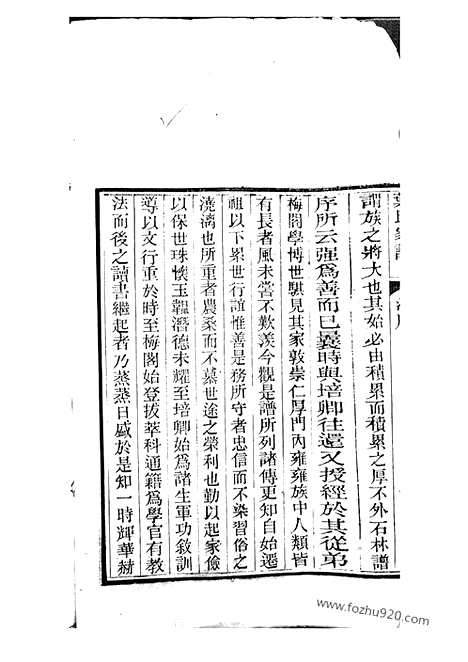 謂族之將大也其始必由積累而積累之厚不外石林譜
序所云强爲善而已曩時與培卿往還又授經於其從弟
梅閣學博世騏見其家敦崇仁厚門內雍雍族中人類皆
有長者風未嘗不歎羨今觀是譜所列諸傳更知自始遷
祖以下累世行誼惟善是務所守者忠信而不染習俗之
澆漓也所重者農桑而不慕世途之榮利也勤以起家儉
以保世珠懷玉韞潛德未耀至培卿始爲諸生軍功敘訓
導以文行重於時至梅閣始登拔萃科通籍爲學官有教
法而後之讀書繼起者乃蒸蒸日盛於是知一時輝華赫
www.fozhu920.com